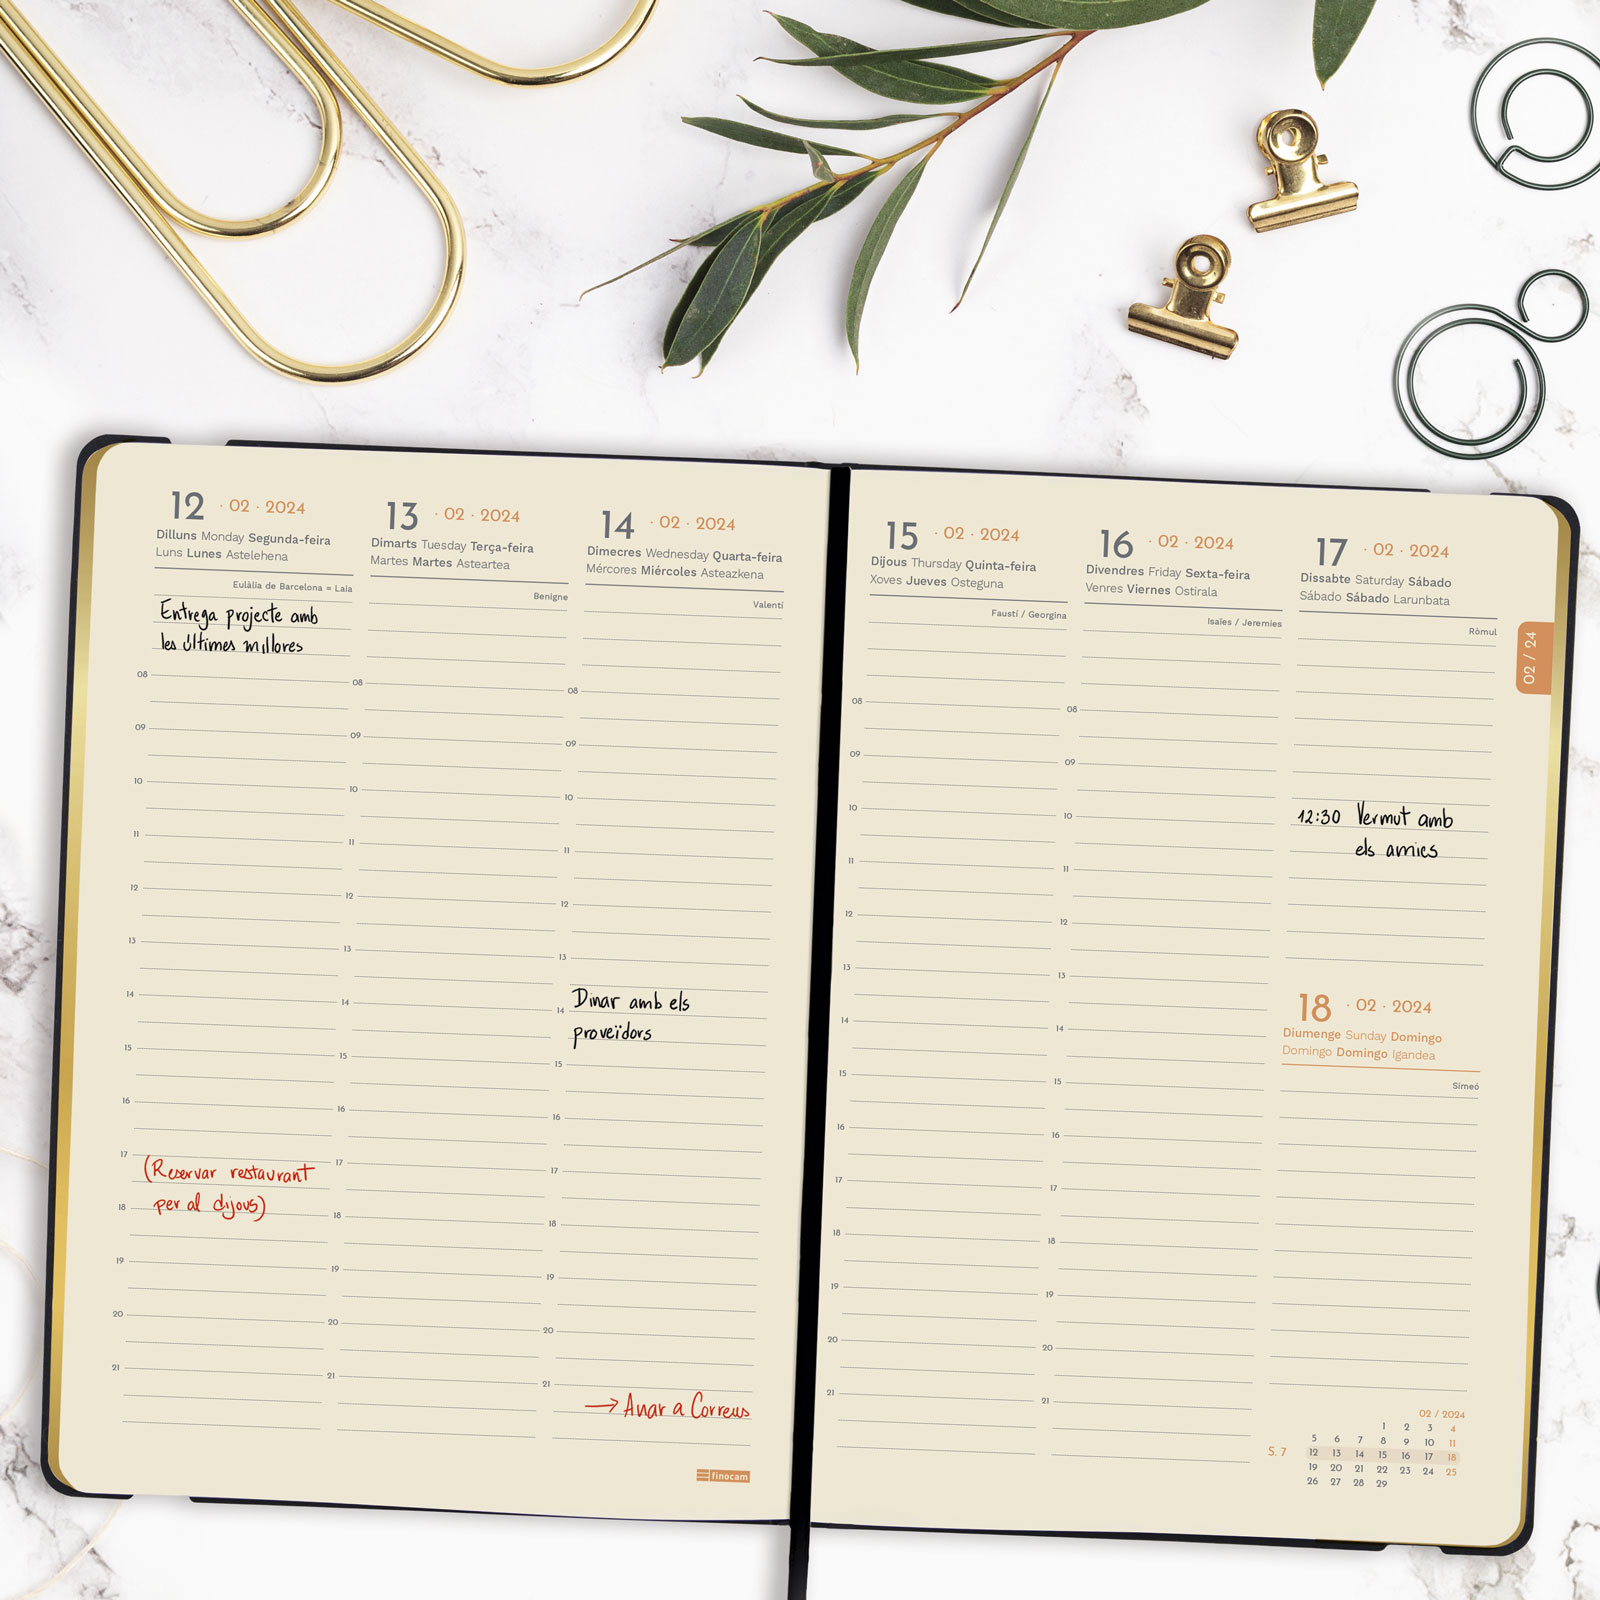 12 · 02 · 2024
Dilluns Monday Segunda-feira
Luns Lunes Astelehena
Eulàlia de Barcelona = Laia
Entrega projecte amb
les últimes millores
08
09
10
11
12
13
14
15
16
17
(Reservar restaurant
per al dijous)
18
19
20
21
13 · 02 · 2024
Dimarts Tuesday Terça-feira
Martes Martes Asteartea
Benigne
08
09
10
11
12
13
14
15
16
17
18
19
20
21
14 · 02 · 2024
Dimecres Wednesday Quarta-feira
Mércores Miércoles Asteazkena
Valentí
08
09
10
11
12
13
Dinar amb els
14
proveïdors
15
16
17
18
19
20
21
→ Anar a Correus
finocam
15 · 02 · 2024
Dijous Thursday Quinta-feira
Xoves Jueves Osteguna
Faustí / Georgina
08
09
10
11
12
13
14
15
16
17
18
19
20
21
16 · 02 · 2024
Divendres Friday Sexta-feira
Venres Viernes Ostirala
Isaïes / Jeremies
08
09
10
11
12
13
14
15
16
17
18
19
20
21
17 · 02 · 2024
Dissabte Saturday Sábado
Sábado Sábado Larunbata
Ròmul
02 / 24
12:30 Vermut amb
els amics
18 · 02 · 2024
Diumenge Sunday Domingo
Domingo Domingo Igandea
Simeó
02 / 2024
1 2 3 4
5 6 7 8 9 10 11
S. 7 12 13 14 15 16 17 18
19 20 21 22 23 24 25
26 27 28 29